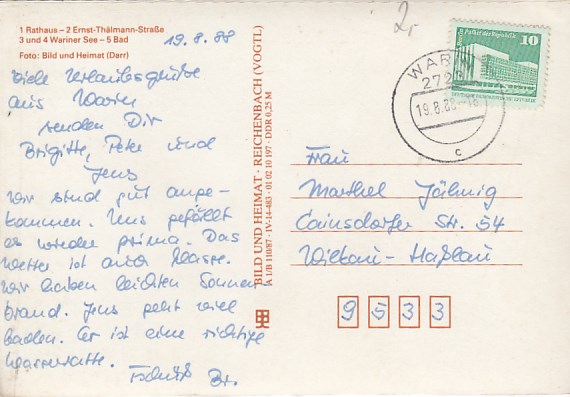 1 Rathaus – 2 Ernst-Thälmann-Straße
3 und 4 Wariner See – 5 Bad
Foto: Bild und Heimat (Darr)
19. 8. 88
Viele Urlaubsgrüße
aus Warin
senden Dir
Brigitte, Peter und
Jens
Wir sind gut ange-
kommen. Uns gefällt
es wieder prima. Das
Wetter ist auch Klasse.
Wir haben leichten Sonnen
brand. Jens geht viel
baden. Er ist eine richtige
Wasserratte.
Tschüß Br.
BILD UND HEIMAT · REICHENBACH (VOGTL)
A 1/B 110/87 · IV-14-483 · 01 02 10 197 · DDR 0,25 M
2,-
10
WARIN
19.8.88
c
Frau
Marthel Jähnig
Cainsdorfer Str. 54
Wilkau-Haßlau
9 5 3 3